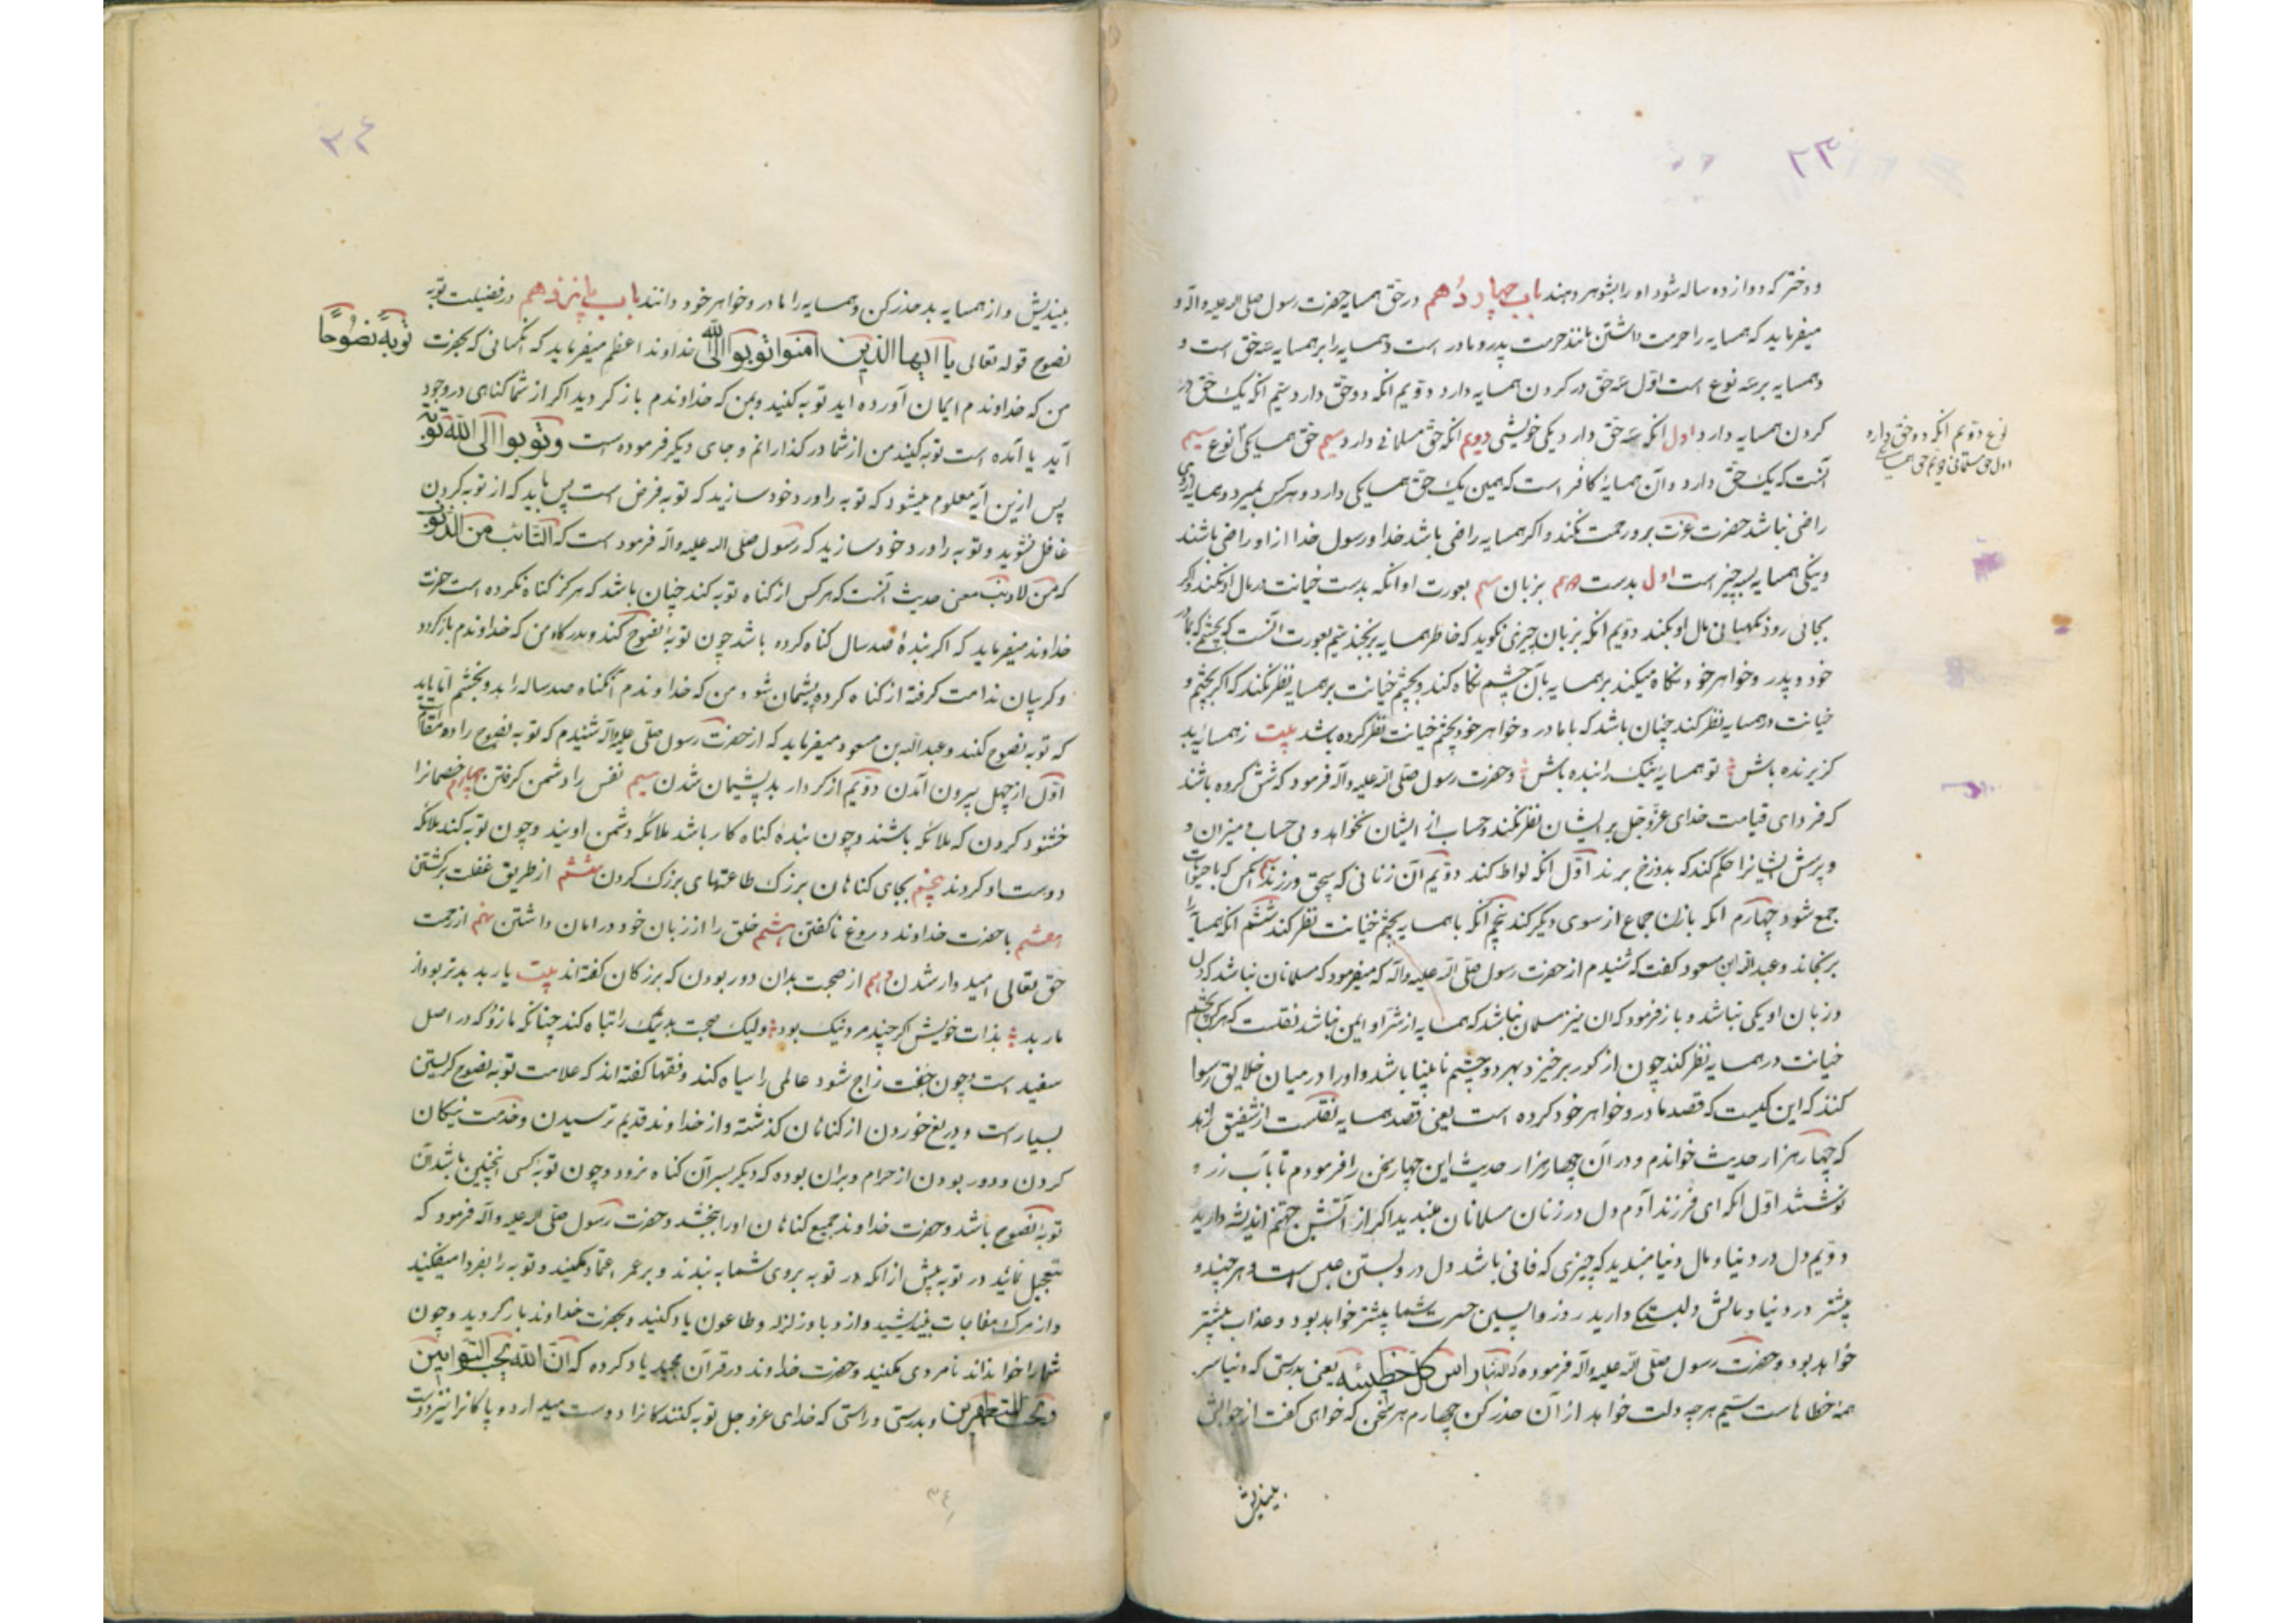 ۲۳
و دختر که دوازده ساله شود او را بشوهر دهند باب چهاردهم در حق همسایه حضرت رسول صلی الله علیه و آله و
میفرماید که همسایه را حرمت داشتن مانند حرمت پدر و مادر است و همسایه را بر همسایه سه حق است و
و همسایه بر سه نوع است اوّل سه حق در کردن همسایه دارد دوّیم انکه دو حق دارد سیّم انکه یک حق در
کردن همسایه دارد اول انکه سه حق دارد یکی خویشی دویم انکه حق مسلمانی دارد سیم حق همسایکی نوع سیم
نوع دوّیم انکه دو حق دارد
اول حق مسلمانی دویم حق همسایکی
آنست که یک حق دارد و آن همسایهٔ کافر است که همین یک حق همسایکی دارد و هر کس بمیرد و همسایه از وی
راضی نباشد حضرت عزت برو رحمت نکند و اکر همسایه راضی باشد خدا و رسول خدا از او راضی باشند
و نیکی همسایه بسه چیز است اول بدست دویم بزبان سیم بعورت او انکه بدست خیانت در مال او نکند و اکر
بجائی رود نکهبانی مال او بکند دویم انکه بزبان چیزی نکوید که خاطر همسایه برنجد سیّم بعورت آنست که بچشم که بمادر
خود و پدر و خواهر خود نکاه میکند بر همسایه بآن چشم نکاه کند و بچشم خیانت بر همسایه نظر نکند که اکر بچشم و
خیانت در همسایه نظر کند چنان باشد که با مادر و خواهر خود بچشم خیانت نظر کرده باشد بیت ز همسایهٔ بد
کریزنده باش تو همسایهٔ نیک را بنده باش و حضرت رسول صلی الله علیه و آله فرمود که شش کروه باشند
که فردای قیامت خدای عزّ و جل بر ایشان نظر نکند و حساب از ایشان نخواهد و بی حساب و میزان و
و پرسش ایشانرا حکم کند که بدوزخ برند اوّل انکه لواط کند دوّیم آن زنانی که سحق ورزند سیم انکس که با حیوانات
جمع شود چهارم انکه با زن جماع از سوی دیکر کند پنجم انکه با همسایه بچشم خیانت نظر کند ششم انکه همسایه را
برنجاند و عبدالله ابن مسعود کفت که شنیدم از حضرت رسول صلی الله علیه و آله که میفرمود که مسلمانان نباشد که دل
و زبان او یکی نباشد و باز فرمود که ان نیز مسلمان نباشد که همسایه از شرّ او ایمن نباشد نقلست که هر که بچشم
خیانت در همسایه نظر کند چون از کور برخیزد بهر دو چشم نابینا باشد و او را در میان خلایق رسوا
کنند که این کیست که قصد مادر و خواهر خود کرده است یعنی قصد همسایه نقلست از شقیق زاهد
که چهار هزار حدیث خواندم و در آن چهار هزار حدیث این چهار سخن را فرمودم تا بآب زر و
نوشتند اوّل انکه ای فرزند آدم دل در زنان مسلمانان مبندید اکر از آتش جهنّم اندیشه دارید
دوّیم دل در دنیا و مال دنیا مبندید که چیزی که فانی باشد دل درو بستن عبس است و هر چند و
بیشتر در دنیا و مالش دلبستکی دارید روز واپسین حسرت شما بیشتر خواهد بود و عذاب بیشتر
خواهد بود و حضرت رسول صلی الله علیه و آله فرموده که الدنیا راس کل خطیئه یعنی بدرستی که دنیا سر
همهٔ خطاهاست سیّم هر چه دلت خواهد از آن حذر کن چهارم هر سخن که خواهی کفت از جوابش
بیندیش
۳۴
بیندیش و از همسایه بد حذر کن و همسایه را مادر و خواهر خود دانند باب پانزدهم در فضیلت توبه
نصوح قوله تعالی یا ایها الذین امنوا توبوا الی الله توبة نصوحا خداوند اعظم میفرماید که انکسانی که بحضرت
من که خداوندم ایمان آورده اید توبه کنید و بمن که خداوندم باز کردید اکر از شما کناهی در وجود
آید یا آمده است توبه کنید من از شما در کذارانم و جای دیکر فرموده است و توبوا الی الله توبة
پس ازین آیه معلوم میشود که توبه را ورد خود سازید که توبه فرض است پس باید که از توبه کردن
غافل نشوید و توبه را ورد خود سازید که رسول صلی الله علیه و آله فرمود است که التائب من الذنوب
کمن لا ذنب معنی حدیث آنست که هر کس از کناه توبه کند چنان باشد که هرکز کناه نکرده است حضرت
خداوند میفرماید که اکر بندهٔ صد سال کناه کرده باشد چون توبهٔ نصوح کند و بدرکاه من که خداوندم باز کردد
و کریبان ندامت کرفته از کناه کرده پشیمان شود من که خداوندم آنکناه صد ساله را بدو بخشم اما باید
که توبه نصوح کنند و عبدالله بن مسعود میفرماید که از حضرت رسول صلی علیه و آله شنیدم که توبه نصوح را ده مقام است
اوّل از جهل بیرون آمدن دوّیم از کردار بد پشیمان شدن سیم نفس را دشمن کرفتن چهارم خصمانرا
خشنود کردن که ملائکه باشند و چون بندهٔ کناه کار باشد ملائکه دشمن اویند و چون توبه کند ملائکه
دوست او کردند پنجم بجای کناهان بزرک طاعتهای بزرک کردن ششم از طریق غفلت برکشتن
هفتم با حضرت خداوند دروغ ناکفتن هشتم خلق را از زبان خود در امان داشتن نهم از رحمت
حق تعالی امیدوار شدن دهم از صحبت بدان دور بودن که بزرکان کفته اند بیت یار بد بدتر بود از
مار بد بذات خویش اکر چند مرد نیک بود ولیک صحبت بد نیک را تباه کند چنانکه مازو که در اصل
سفید است چون جفت زاج شود عالمی را سیاه کند و فقها کفته اند که علامت توبهٔ نصوح کریستن
بسیار است و دریغ خوردن از کناهان کذشته و از خداوند قدیم ترسیدن و خدمت نیکان
کردن و دور بودن از حرام و بران بوده که دیکر بسر آن کناه نرود و چون توبهٔ کسی اینچنین باشد آن
توبهٔ نصوح باشد و حضرت خداوند جمیع کناهان او را ببخشد و حضرت رسول صلی الله علیه و آله فرمود که
تعجیل نمائید در توبه پیش از انکه در توبه بروی شما به بندند و بر عمر اعتماد مکنید و توبه را بفردا میفکنید
و از مرک مفاجات بیندیشید و از وبا و زلزله و طاعون یاد کنید و بحضرت خداوند باز کردید و چون
شما را خوانده اند نامردی مکنید و حضرت خداوند در قرآن مجید یاد کرده که ان الله یحب التوابین
و یحب المتطهرین و بدرستی و راستی که خدای عز و جل توبه کنندکانرا دوست میدارد و پاکانرا نیز دوست
۳۴